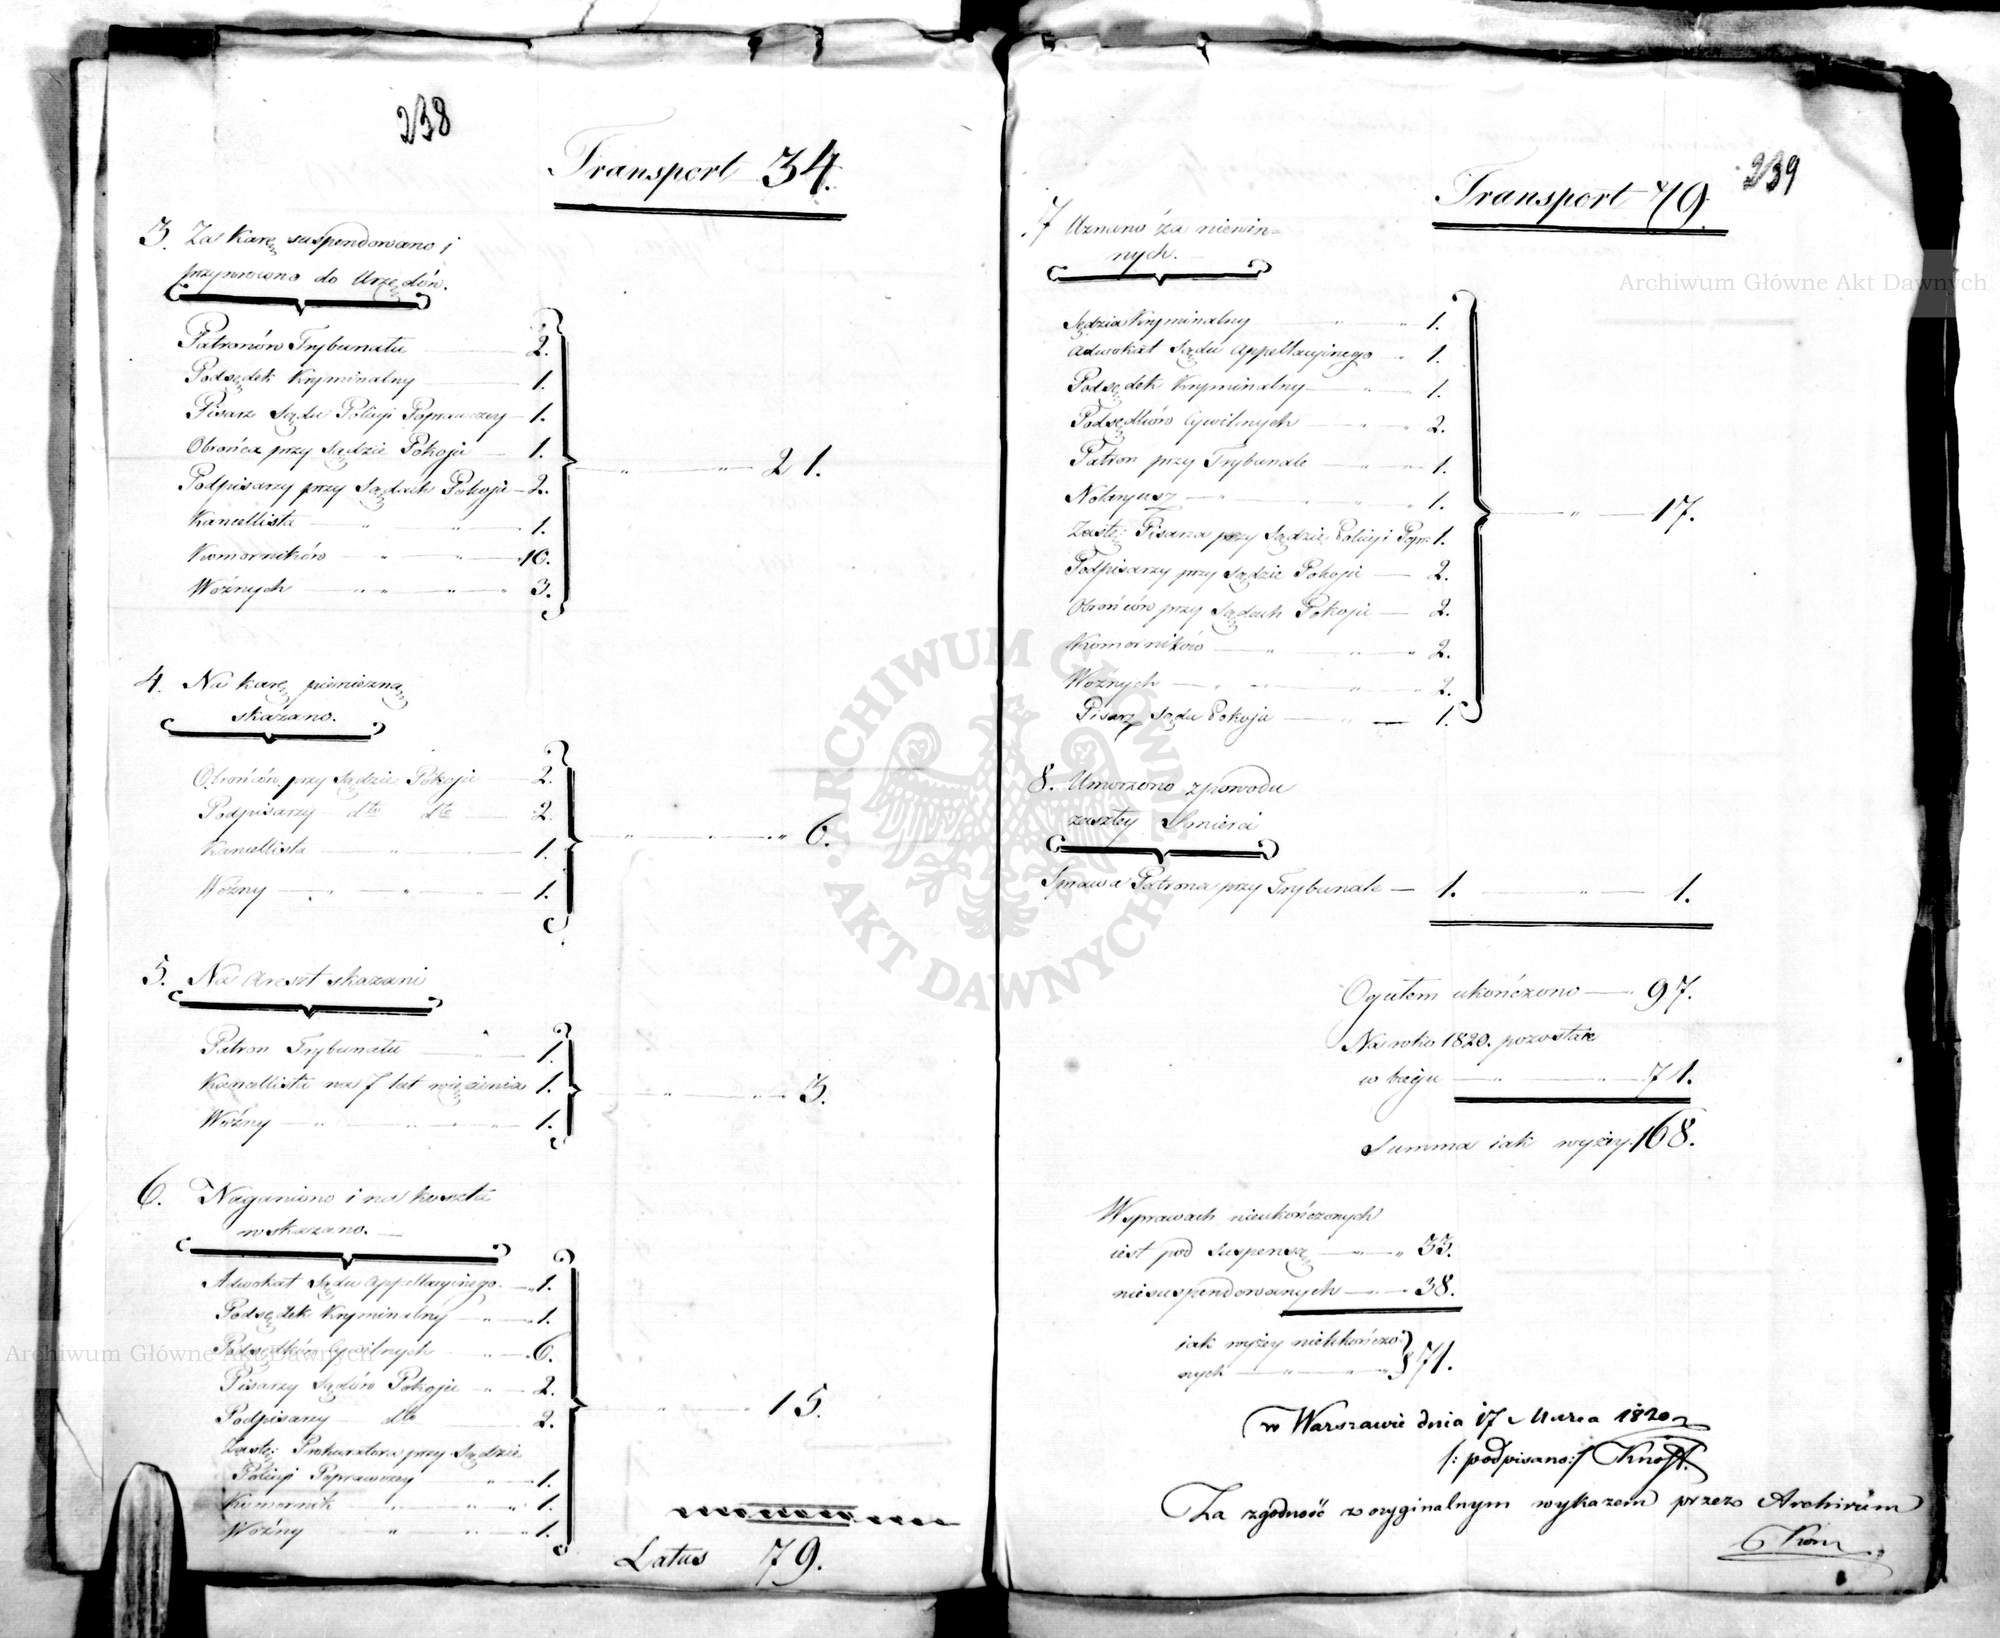 238
Transport 34.
3. Za karę suspendowano i
przywrocono do Urzędów.
Patronów Trybunału 2.
Podsędek Kryminalny 1.
Pisarz Sądu Policyi Poprawczey 1.
Obrońca przy Sądzie Pokoju 1.
Podpisarzy przy Sądach Pokoju 2.
Kancellista 1.
Komorników 10.
Woźnych 3.
21.
4. Na karę pieniężną
skazano.
Obrońców przy Sądzie Pokoju 2.
Podpisarzy dto dto 2.
Kancellista 1.
Woźny 1.
6.
5. Na Areszt skazani
Patron Trybunału 1.
Kancellista na 7 lat więzienia 1.
Woźny 1.
3.
6. Naganiono i na koszta
wskazano.
Adwokat Sądu Appellacyinego 1.
Podsędek Kryminalny 1.
Podsędków Cywilnych 6.
Pisarzy Sądów Pokoju 2.
Podpisarzy dto 2.
Zastę: Prokuratora przy Sądzie
Policyi Poprawczey 1.
Komornik 1.
Woźny 1.
15.
Latus 79.
239
Transport 79.
7 Uznano za niewin=
nych.
Sędzia Kryminalny 1.
Adwokat Sądu Appellacyinego 1.
Podsędek Kryminalny 1.
Podsędków Cywilnych 2.
Patron przy Trybunale 1.
Notaryusz 1.
Zastę: Pisarza przy Sądzie Policyi Popr: 1.
Podpisarzy przy Sądzie Pokoju 2.
Obrońców przy Sądach Pokoju 2.
Komorników 2.
Woźnych 2.
Pisarz Sądu Pokoju 1.
17.
8. Umorzono z powodu
zaszłey Śmierci
Sprawa Patrona przy Trybunale 1. 1.
Ogułem ukończono 97.
Na roko 1820. pozostaie
w biegu 71.
Summa iak wyżey 168.
W sprawach nieukończonych
iest pod suspensą 33.
niesuspendowanych 38.
iak wyżey nieukończo:
nych 71.
w Warszawie dnia 17 Marca 1820
/: podpisano:/ Knoff.
Za zgodność z oryginalnym wykazem przez Archiwum
Archiwum Główne Akt Dawnych
Archiwum Główne Akt Dawnych
ARCHIWUM GŁÓWNE AKT DAWNYCH